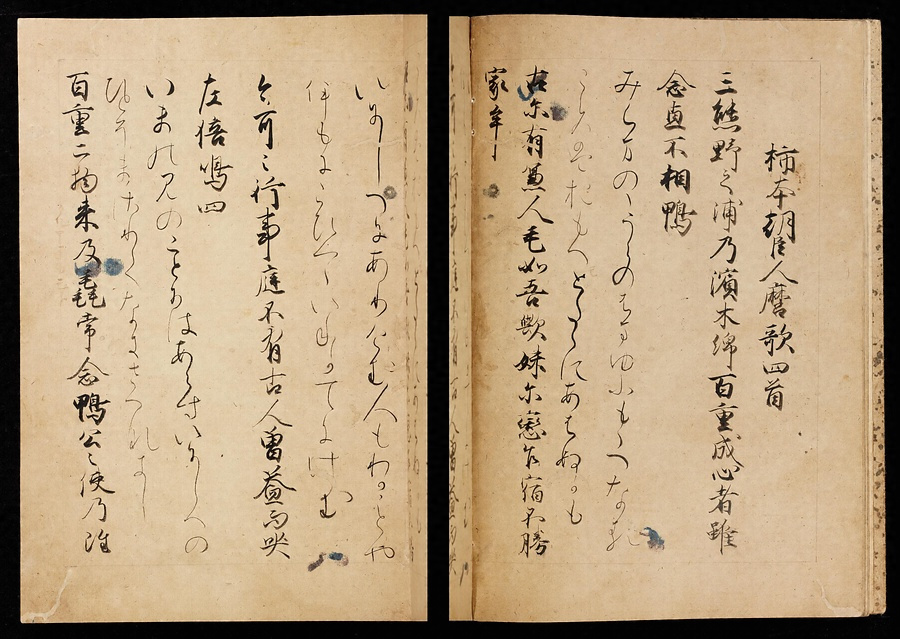 柿本朝臣人麿歌四首
三熊野之浦乃濱木綿百重成心者雖
念直不相鴨
みくまのゝうらのはまゆふもゝへなれ
こゝろはおもへとたゝにあはぬかも
古尓有兼人毛如吾歟妹尓戀乍宿不勝
家牟
いにしへにありけむ人もわかことや
いもにこひつゝいねかてにけむ
今耳之行事庭不有古人曽益而哭
左倍鳴四
いまのみのことにはあらすいにしへの
百重二物来及毳常念鴨公之使乃雖